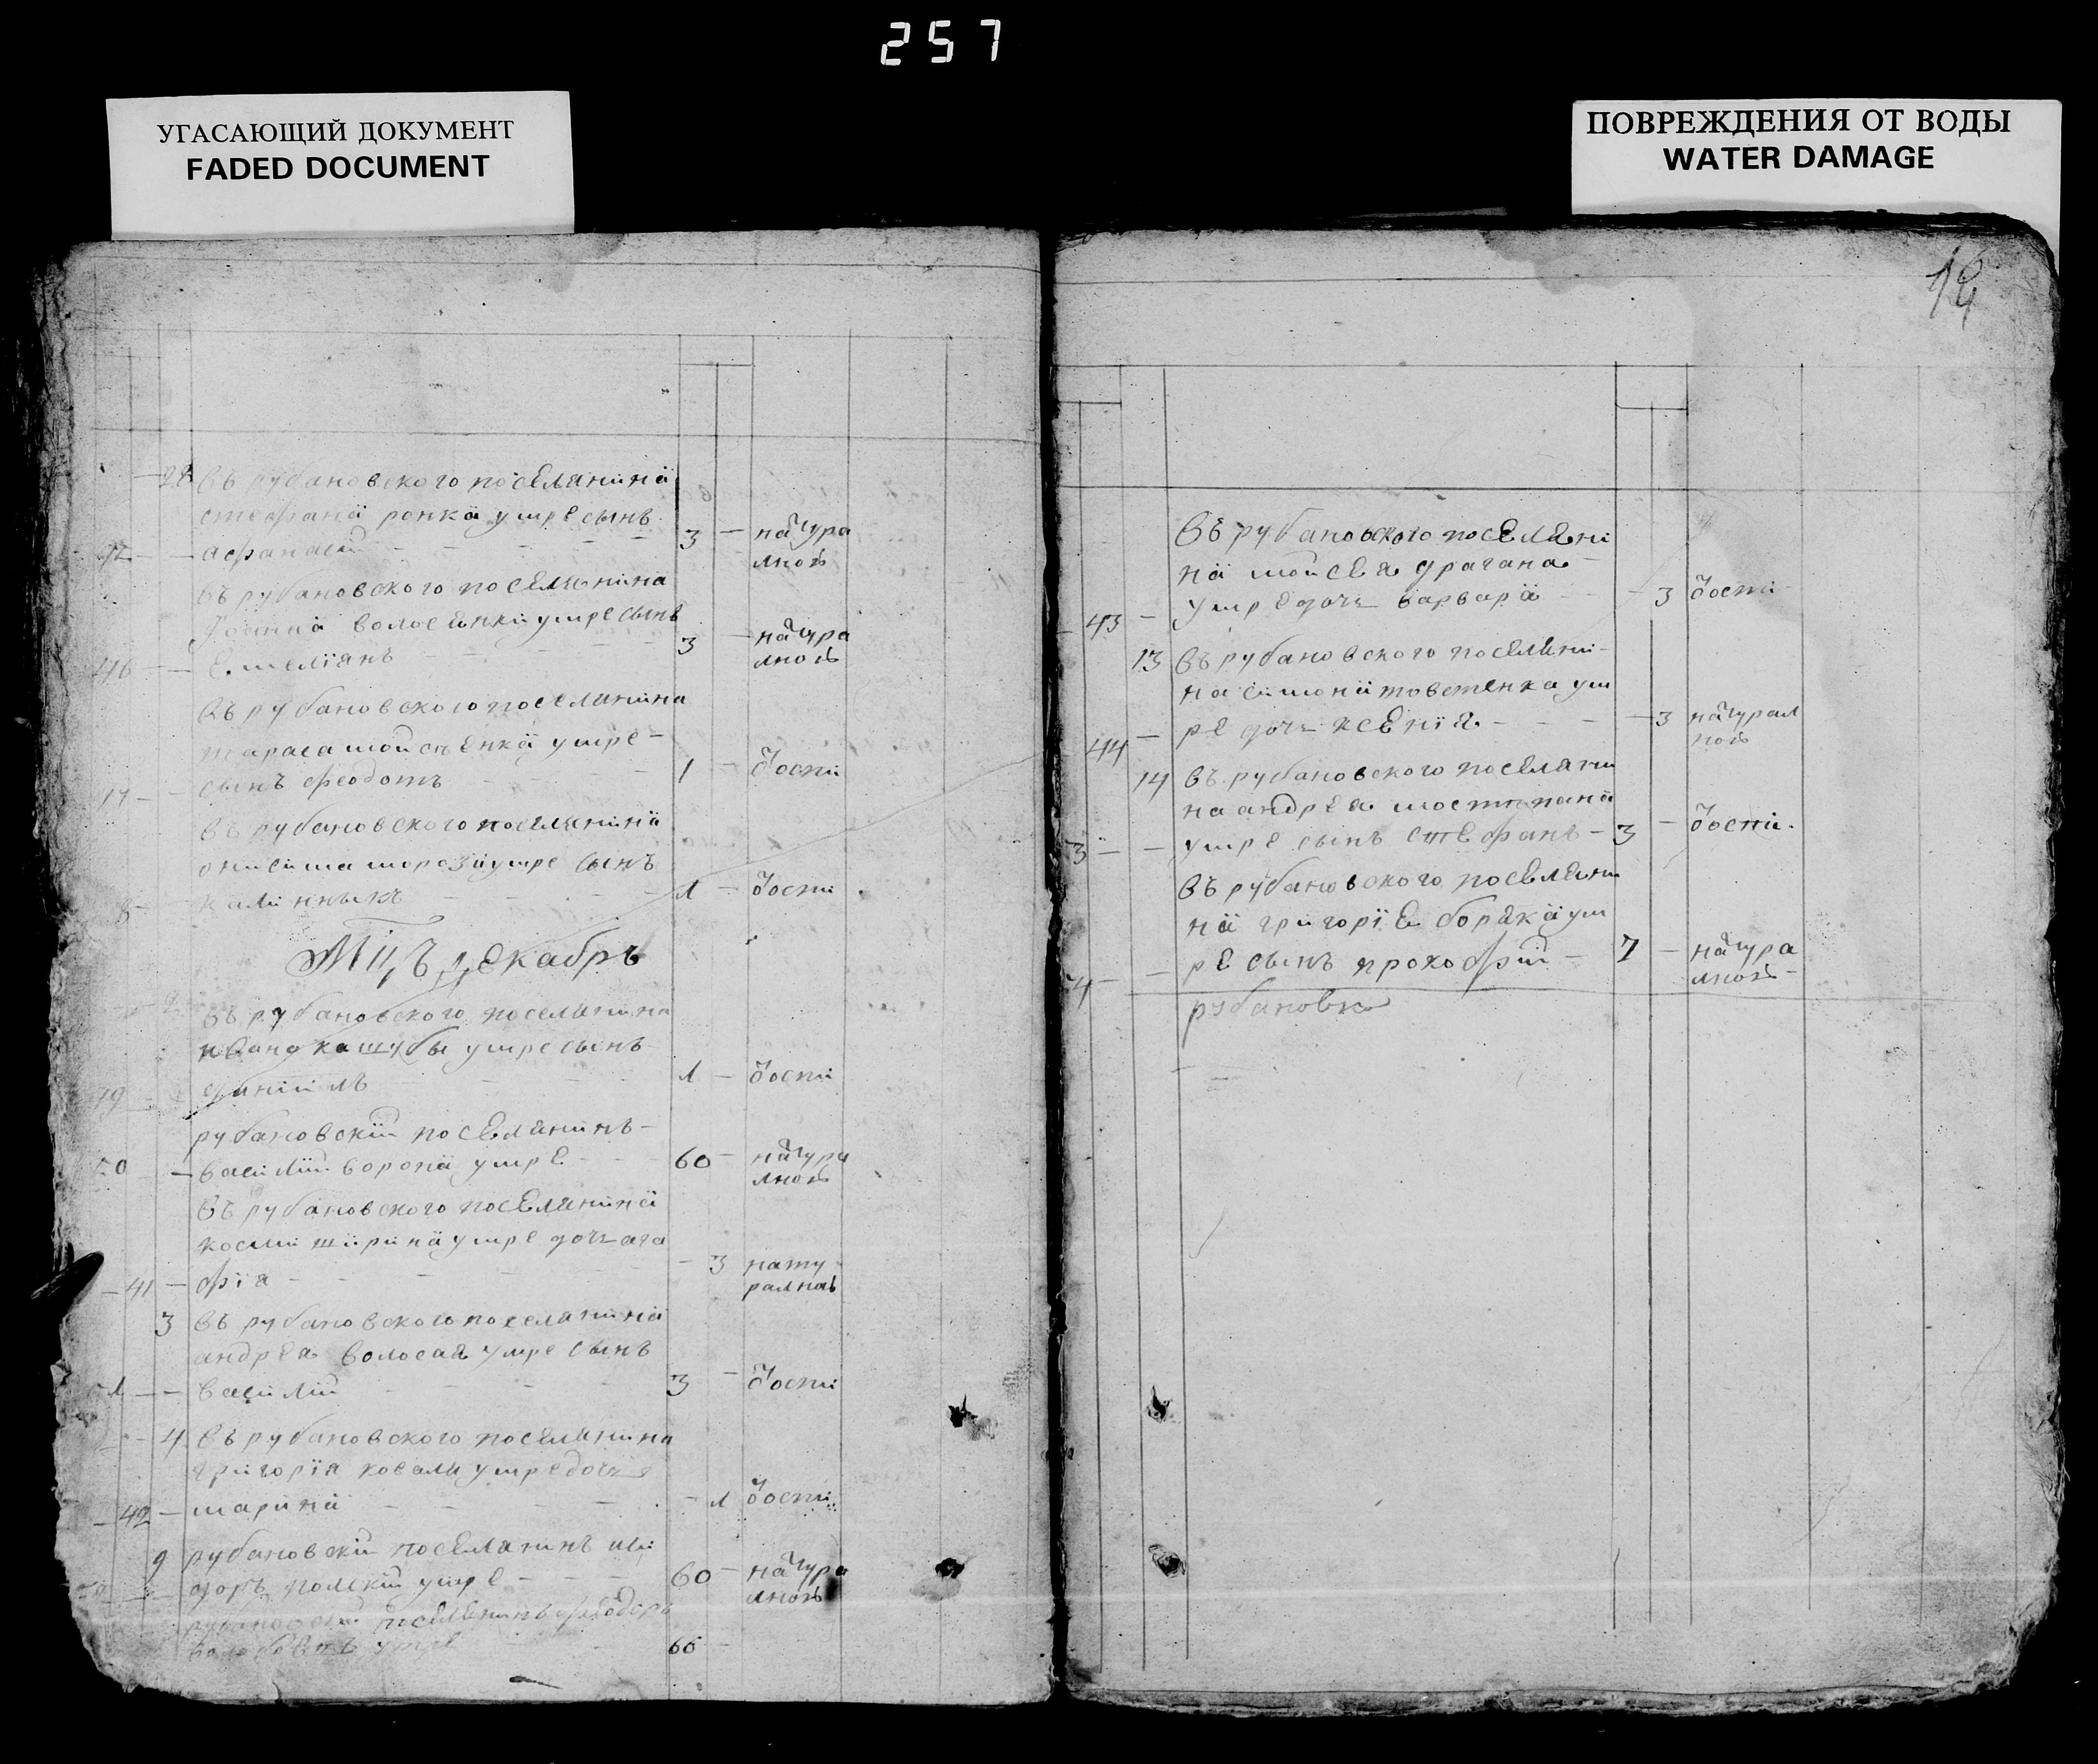 257
УГАСАЮЩИЙ ДОКУМЕНТ
FADED DOCUMENT
ПОВРЕЖДЕНИЯ ОТ ВОДЫ
WATER DAMAGE
28 въ рубановского поселянина
стефана репка умре сынъ
афанасий 3 натура
лною
въ рубановского поселянина
Iоанна волосянки умре сынъ
46 Емелiянъ 3 натура
лною
въ рубановского поселянина
тараса умре
сынъ феодотъ 1 оспи
въ рубановского поселянина
онисима мороза умре сынъ
1 оспи
Мцъ декабръ
въ рубановского поселянина
ивана кашубы умре сынъ
данiилъ 1 оспи
рубановскiй поселянинъ
василiй ворона умре 60 натура
лною
въ рубановского поселянина
косми ширина умре дочь ага
41 фiя 3 нату
ралною
3 въ рубановского поселянина
андрея волосая умре сынъ
василiй 3 оспи
4 въ рубановского поселянина
григорiя ковали умре дочь
42 марина 1 оспи
9 рубановскiй поселянинъ иси
доръ полскiй умре 60 натура
лною
рубановскiй поселянинъ феодоръ
умре 60
въ рубановского поселяни
на моисея драгана
43 умре дочь варвара 3 оспи
13 въ рубановского поселяни
на симона товстенка ум
44 ре дочь ксенiя 3 натурал
ною
14 въ рубановского поселяни
на андрея
3 умре сынъ стефанъ 3 оспи
въ рубановского поселяни
на григорiя боряка ум
4 ре сынъ прокофiй 7 натура
лною
рубановка